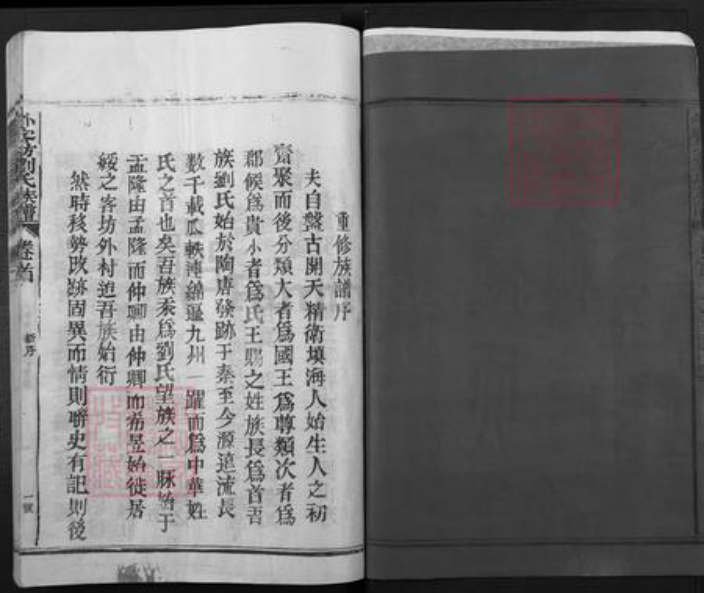 重修族譜序
夫自盤古開天精衛填海人始生人之初
齊聚而後分類大者為國王為尊類次者為
郡候為貴小者為氏王賜之姓族長為首吾
族劉氏始於陶唐發跡于秦至今源遠流長
数千載瓜軼連綿遍九州一躍而為中華姓
氏之首也矣吾族忝為劉氏望族之一脉始于
孟隆由孟隆而仲卿由仲卿而希昱始徙居
綏之客坊外村迨吾族始衍
然時移勢改跡固異而情則聯史有記則後
劉氏族譜
卷首
新序
一號